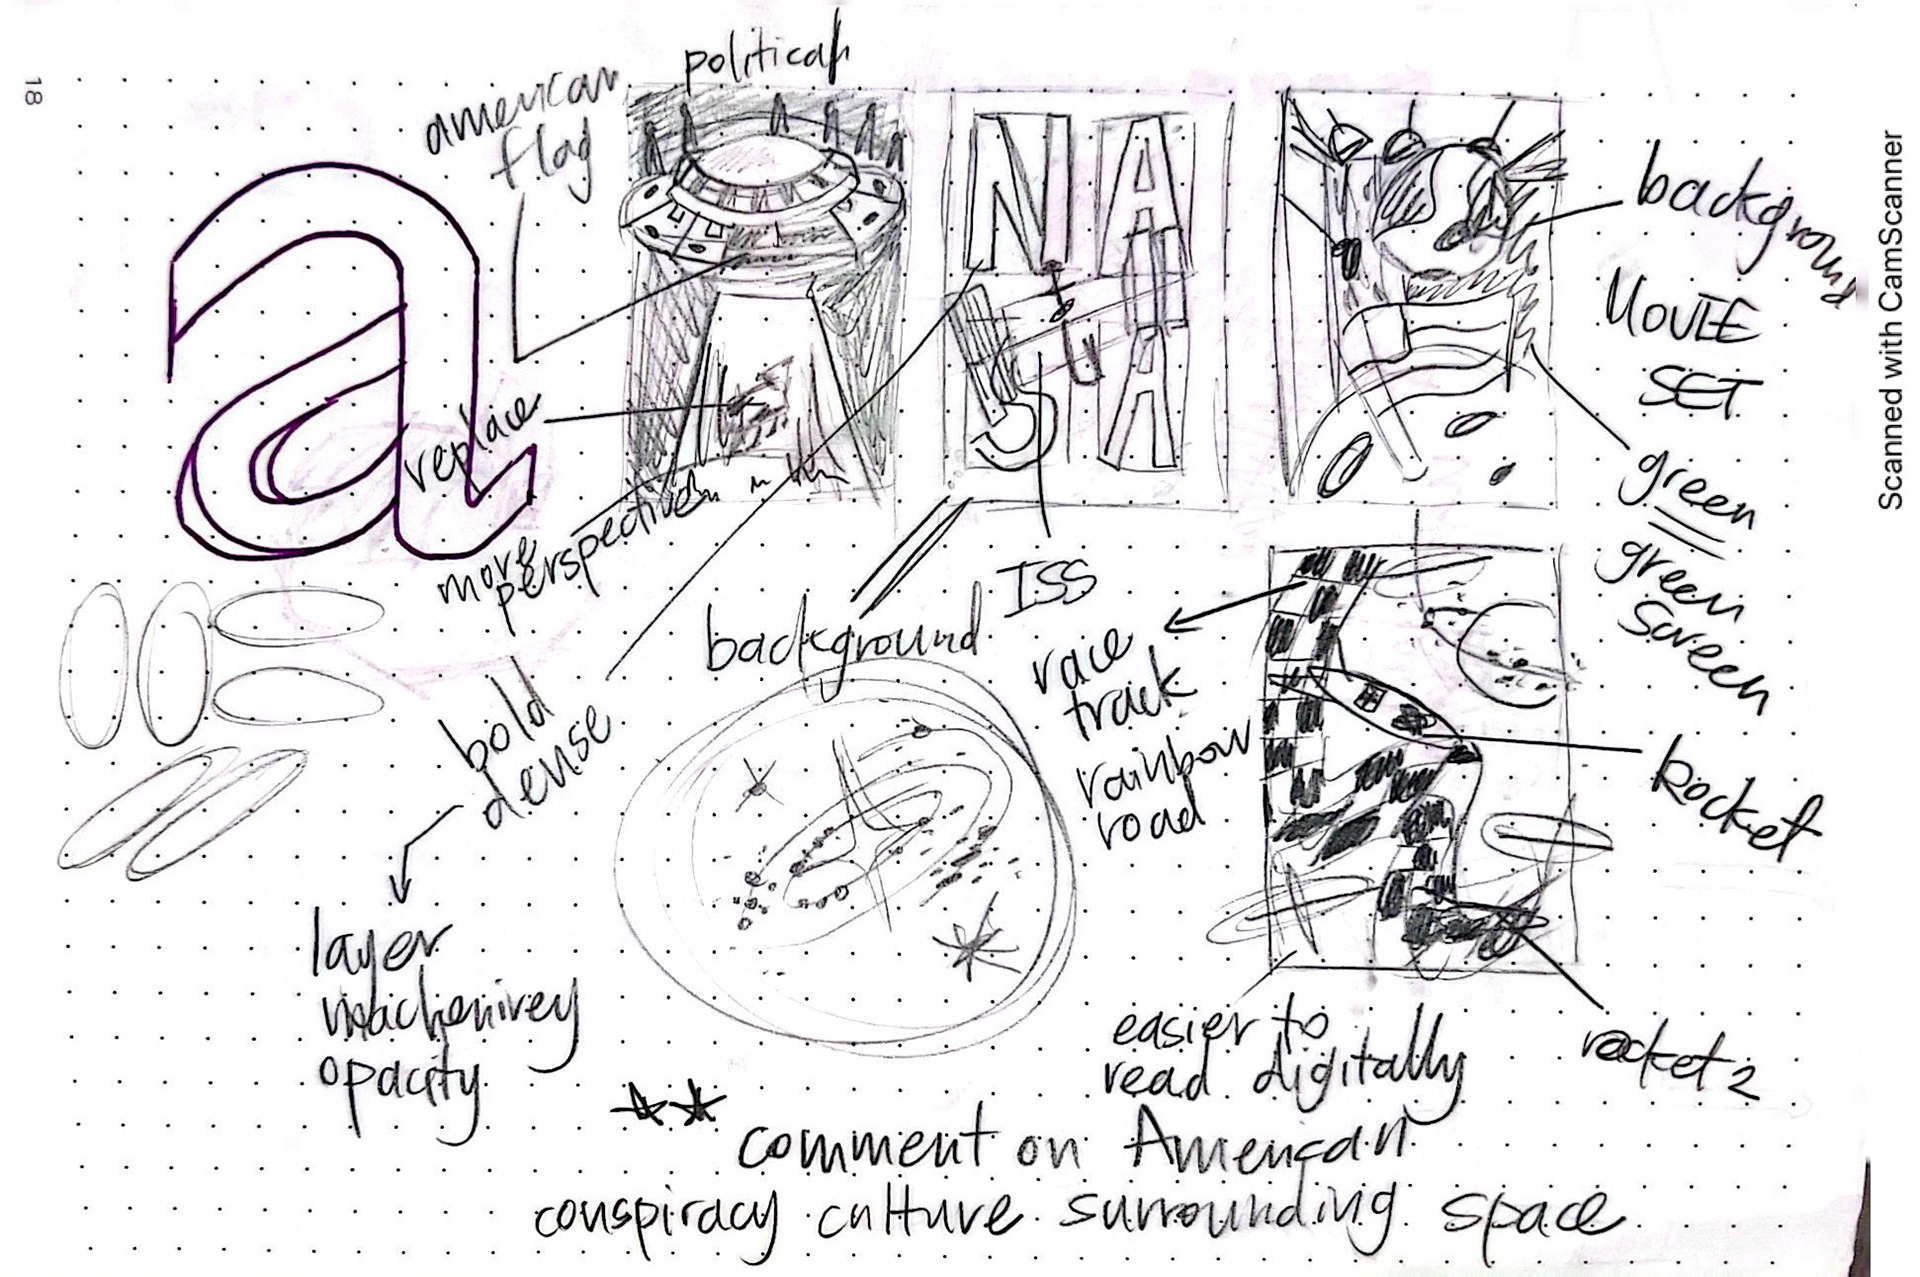 18
a
american
flag
political
NA
SA
background
MOVIE
SET
green
green
screen
replace
more
perspective
bold
dense
layer
machenirey
opacity
background
ISS
race
track
rainbow
road
Rocket
rocket 2
easier to
read digitally
comment on American
conspiracy culture surrounding space
Scanned with CamScanner